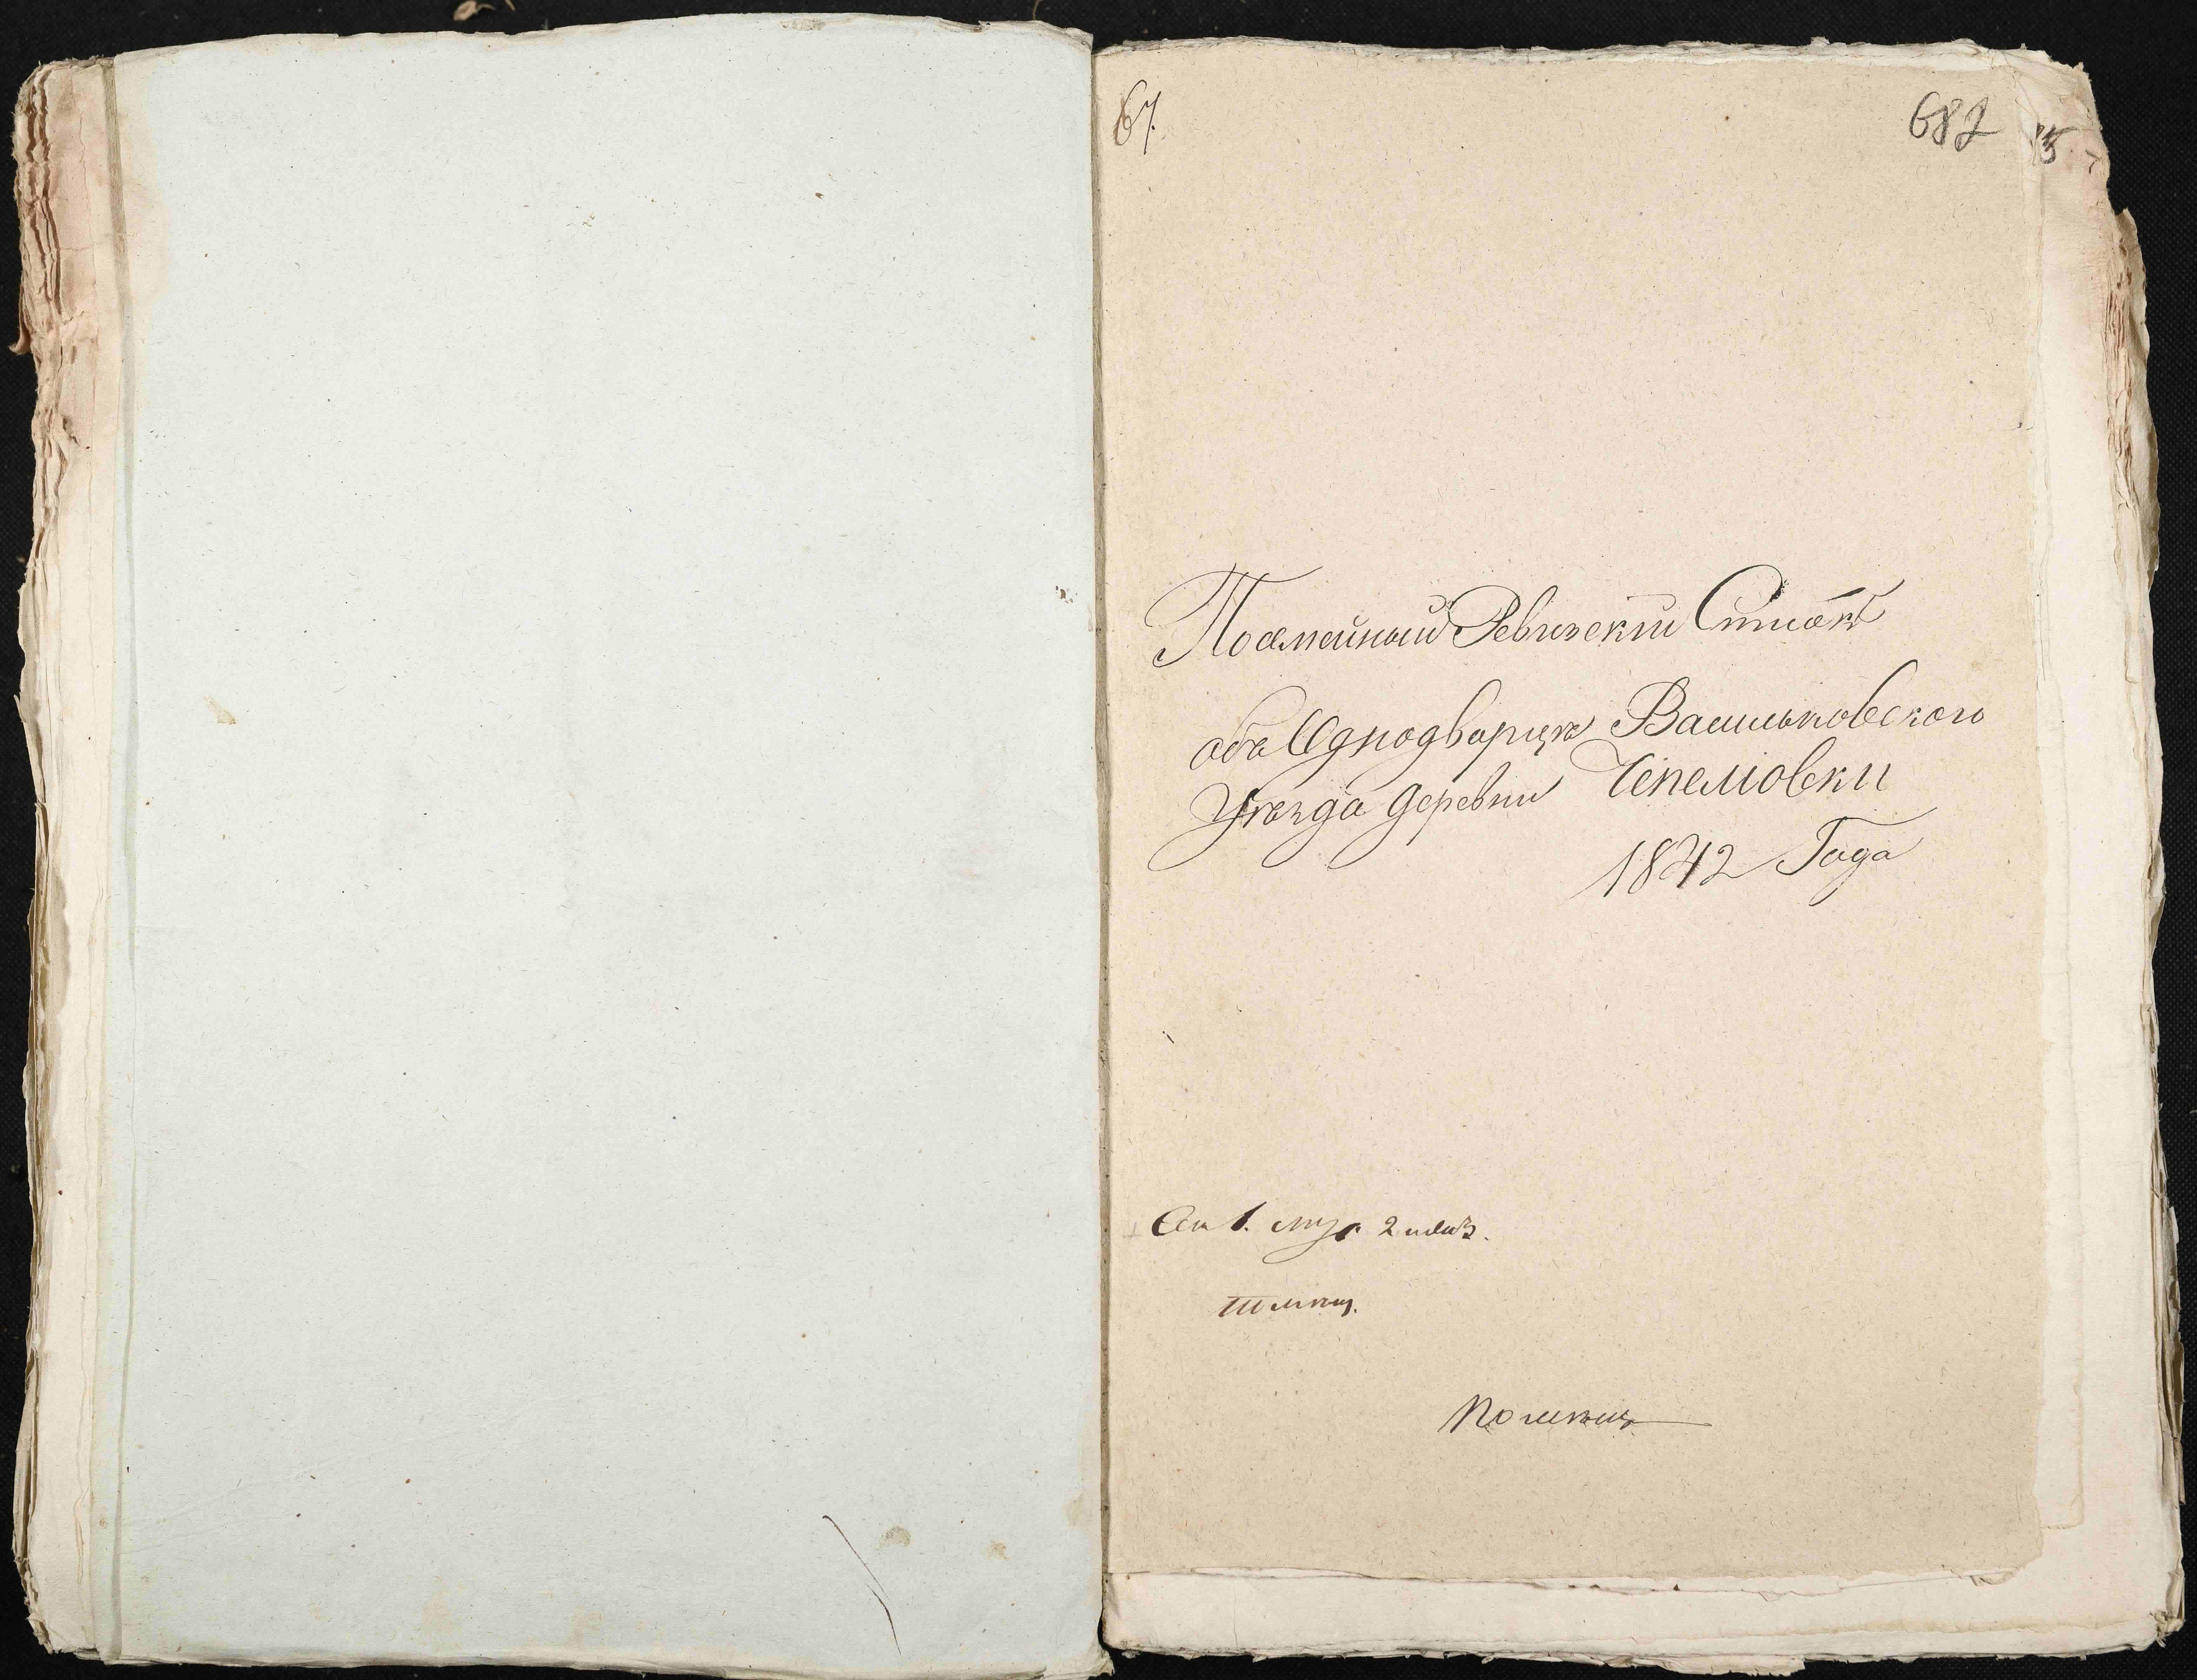 67.
682
Посемейный Ревизский Списокъ
объ Однодворцѣ Васильковскаго
Уѣзда деревни Чепелiовки
1842 Года
1. 2